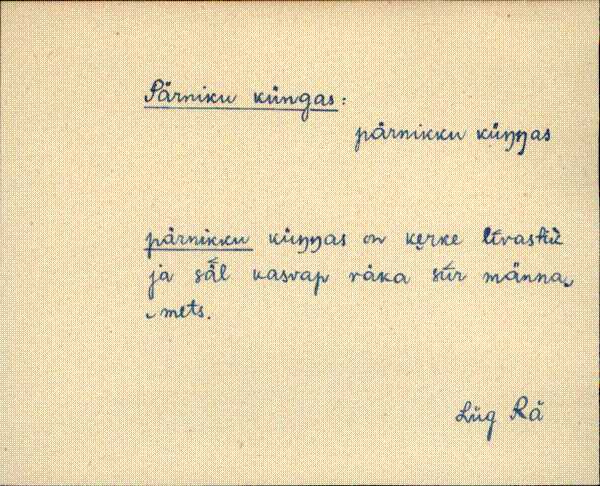 Pärniku küngas:
pärnikku küŋŋas
pärnikku küŋŋas on kerke līvastik
ja sǟl kasvap räka sūr männa
mets.
Lüg Rä